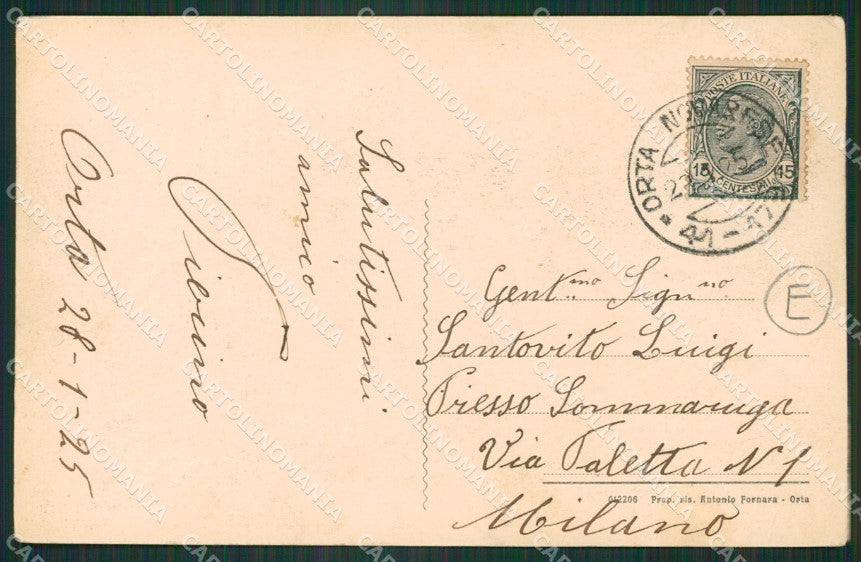 Orta 28-1-25
Salutissimi
amico
POSTE ITALIANE
15 15
CENTESIMI
* ORTA NOVARESE
41-17
Gent.mo Sign.no
Santovito Luigi
Presso Sommaruga
Via Paletta N 1
Milano
012206 Prop. ris. Antonio Fornara - Orta
E
CARTOLINOMANIA